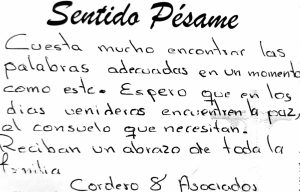 Sentido Pésame
Cuesta mucho encontrar las
palabras adecuadas en un momento
como este. Espero que en los
dias venideros encuentren la paz,
el consuelo que necesitan.
Reciban un abrazo de toda la
familia
Cordero & Asociados